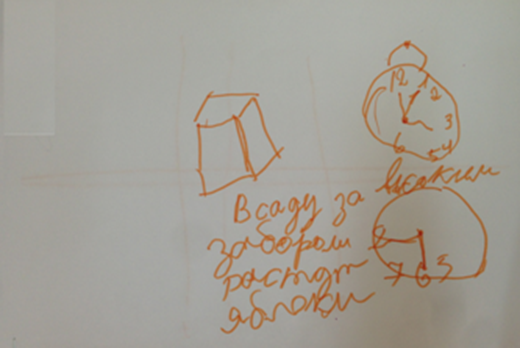 12 1
2
3
4
5
6
В саду за высоким
забором
растут
яблоки
7 6 5